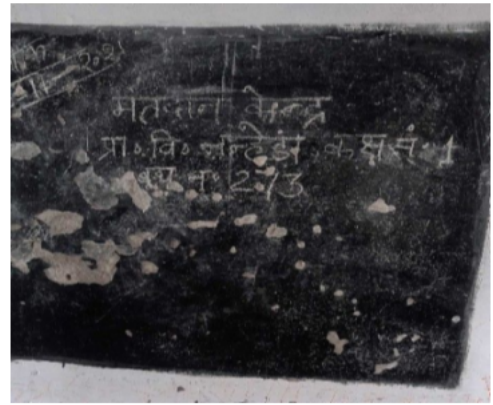 मतदान केन्द्र
प्रा० वि० जन्हेडा कक्ष सं० 1
बूथ न० 273